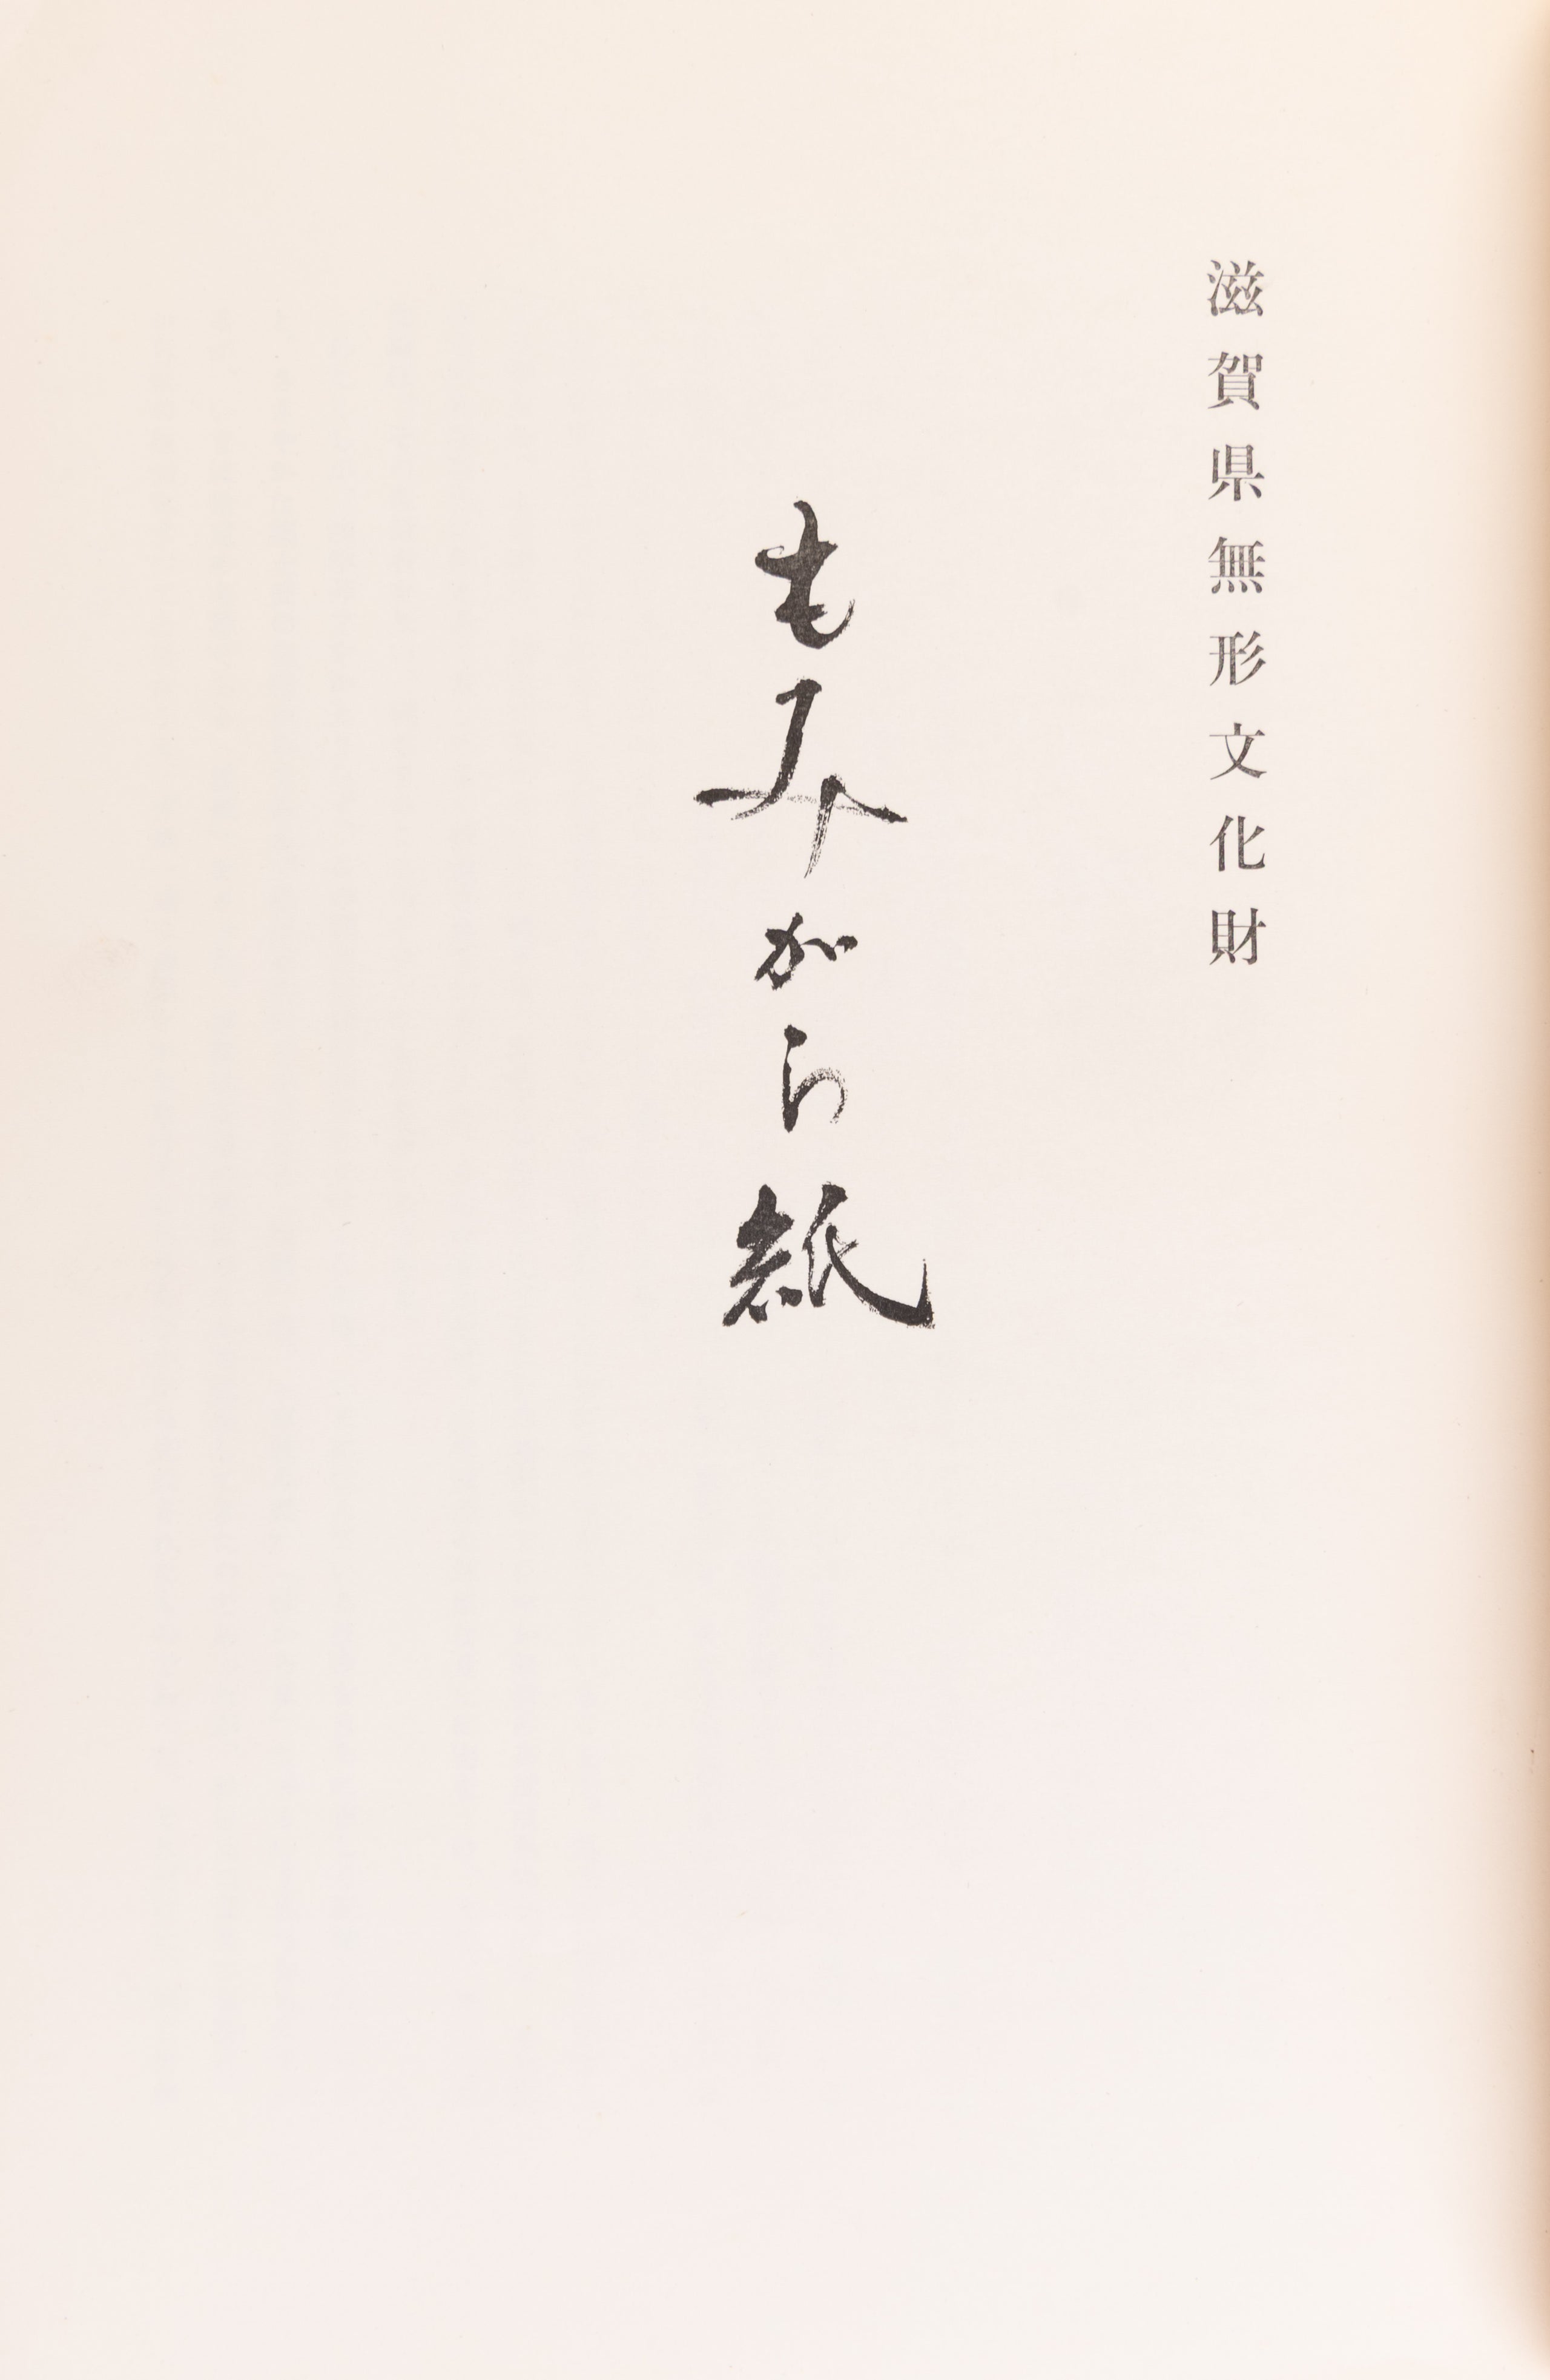 滋賀県無形文化財
もみがら紙